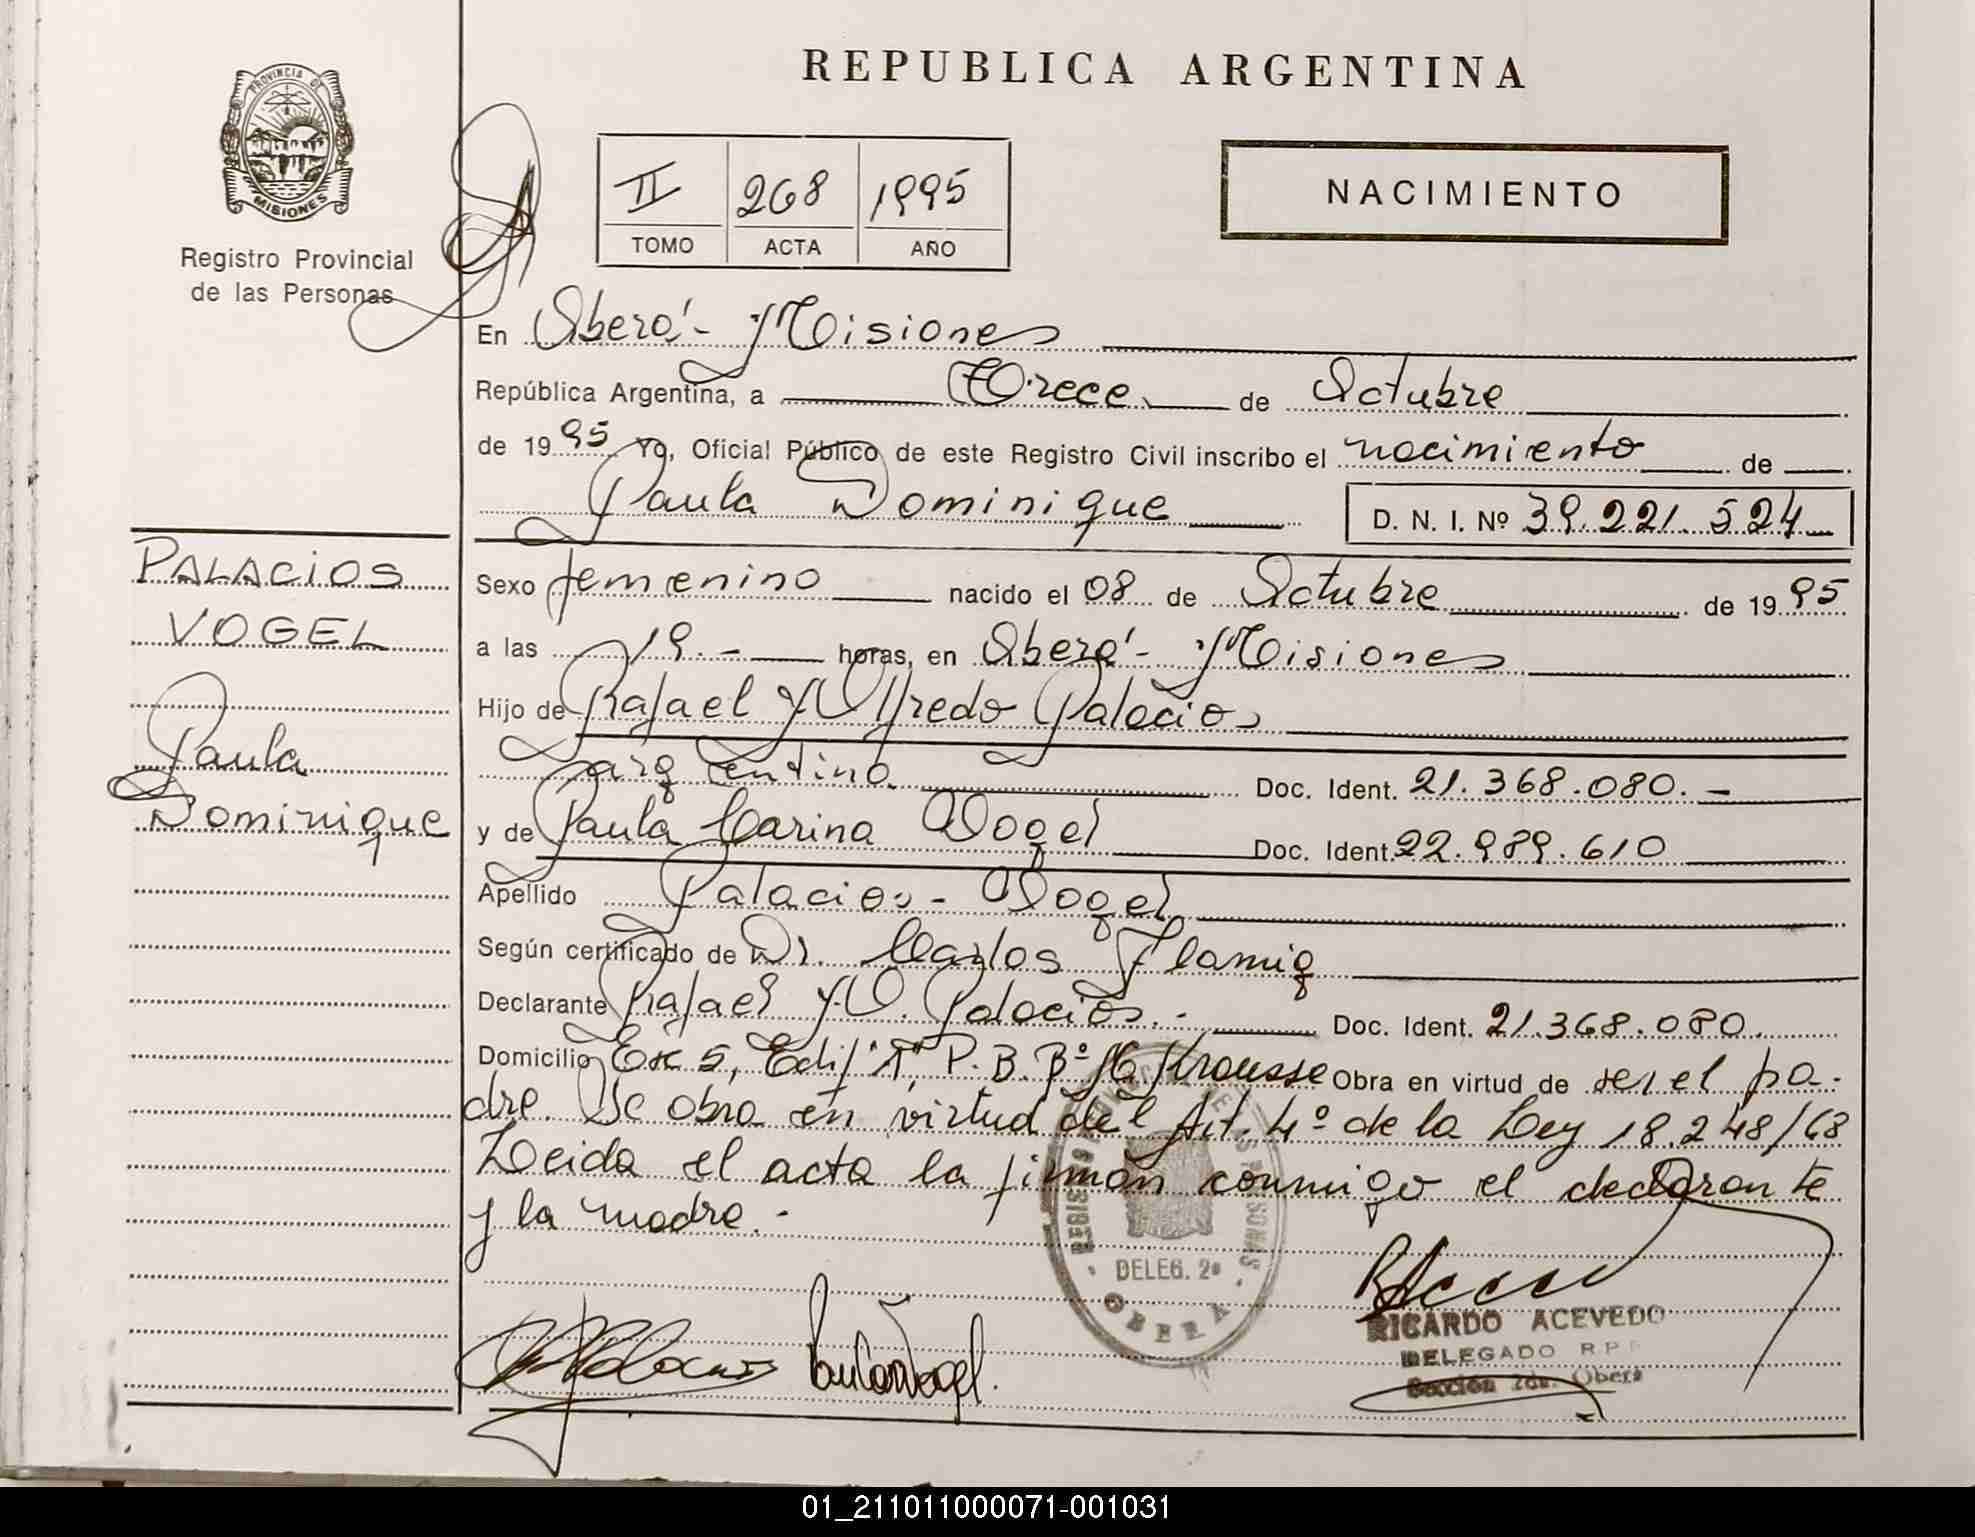 REPUBLICA ARGENTINA
PROVINCIA DE
MISIONES
Registro Provincial
de las Personas
II 268 1995
TOMO ACTA AÑO
NACIMIENTO
En Oberá - Misiones
República Argentina, a Trece de Octubre
de 1995 Yo, Oficial Público de este Registro Civil inscribo el nacimiento de
Paula Dominique D. N. I. Nº 39.221.524
PALACIOS
VOGEL
Paula
Dominique
Sexo femenino nacido el 08 de Octubre de 1995
a las 19.- horas, en Oberá - Misiones
Hijo de Rafael Alfredo Palacios
argentino Doc. Ident. 21.368.080.-
y de Paula Carina Vogel Doc. Ident. 22.989.610
Apellido Palacios - Vogel
Según certificado de Dr. Carlos Flamig
Declarante Rafael A. Palacios.- Doc. Ident. 21.368.080.
Domicilio Esc 5, Edif "A", P.B. Bº Krausse Obra en virtud de ser el pa-
dre. Se obra en virtud del Art. 4º de la Ley 18.248/68
Leida el acta la firman conmigo el declarante
y la madre.-
DELEG. 2ª
OBERA
RICARDO ACEVEDO
DELEGADO RPP
Sección 2da. Oberá
01_211011000071-001031